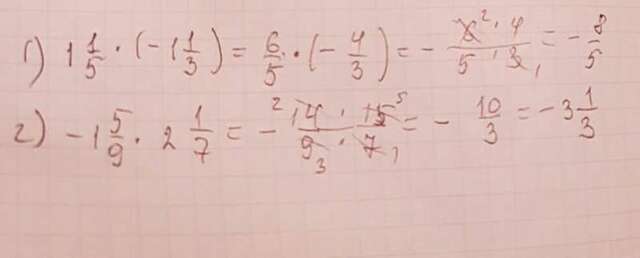 1) 1 1/5 · (-1 1/3) = 6/5 · (-4/3) = - 6² · 4 / 5 · 3₁ = - 8/5
2) -1 5/9 · 2 1/7 = - ²14 · 15⁵ / 9₃ · 7₁ = - 10/3 = -3 1/3